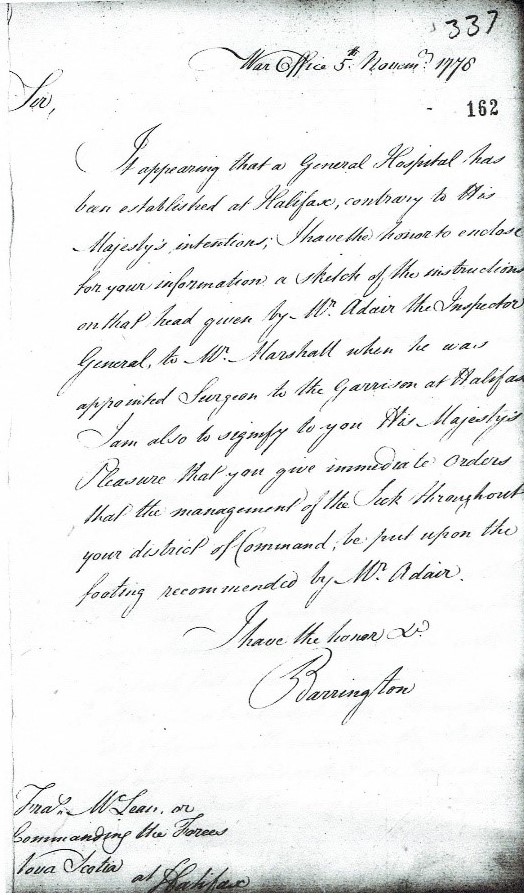 337
War Office 5th Novemr 1778
162
Sir,
It appearing that a General Hospital has
been established at Halifax, contrary to His
Majesty's intentions; I have the honor to enclose
for your information a sketch of the instructions
on that head given by Mr. Adair the Inspector
General, to Mr. Marshall when he was
appointed Surgeon to the Garrison at Halifax
I am also to signify to you His Majesty's
Pleasure that you give immediate Orders
that the management of the Sick throughout
your district of Command, be put upon the
footing recommended by Mr. Adair.
I have the honor &c.
Barrington
Fras. McLean, or
Commanding the Forces
Nova Scotia
at Halifax